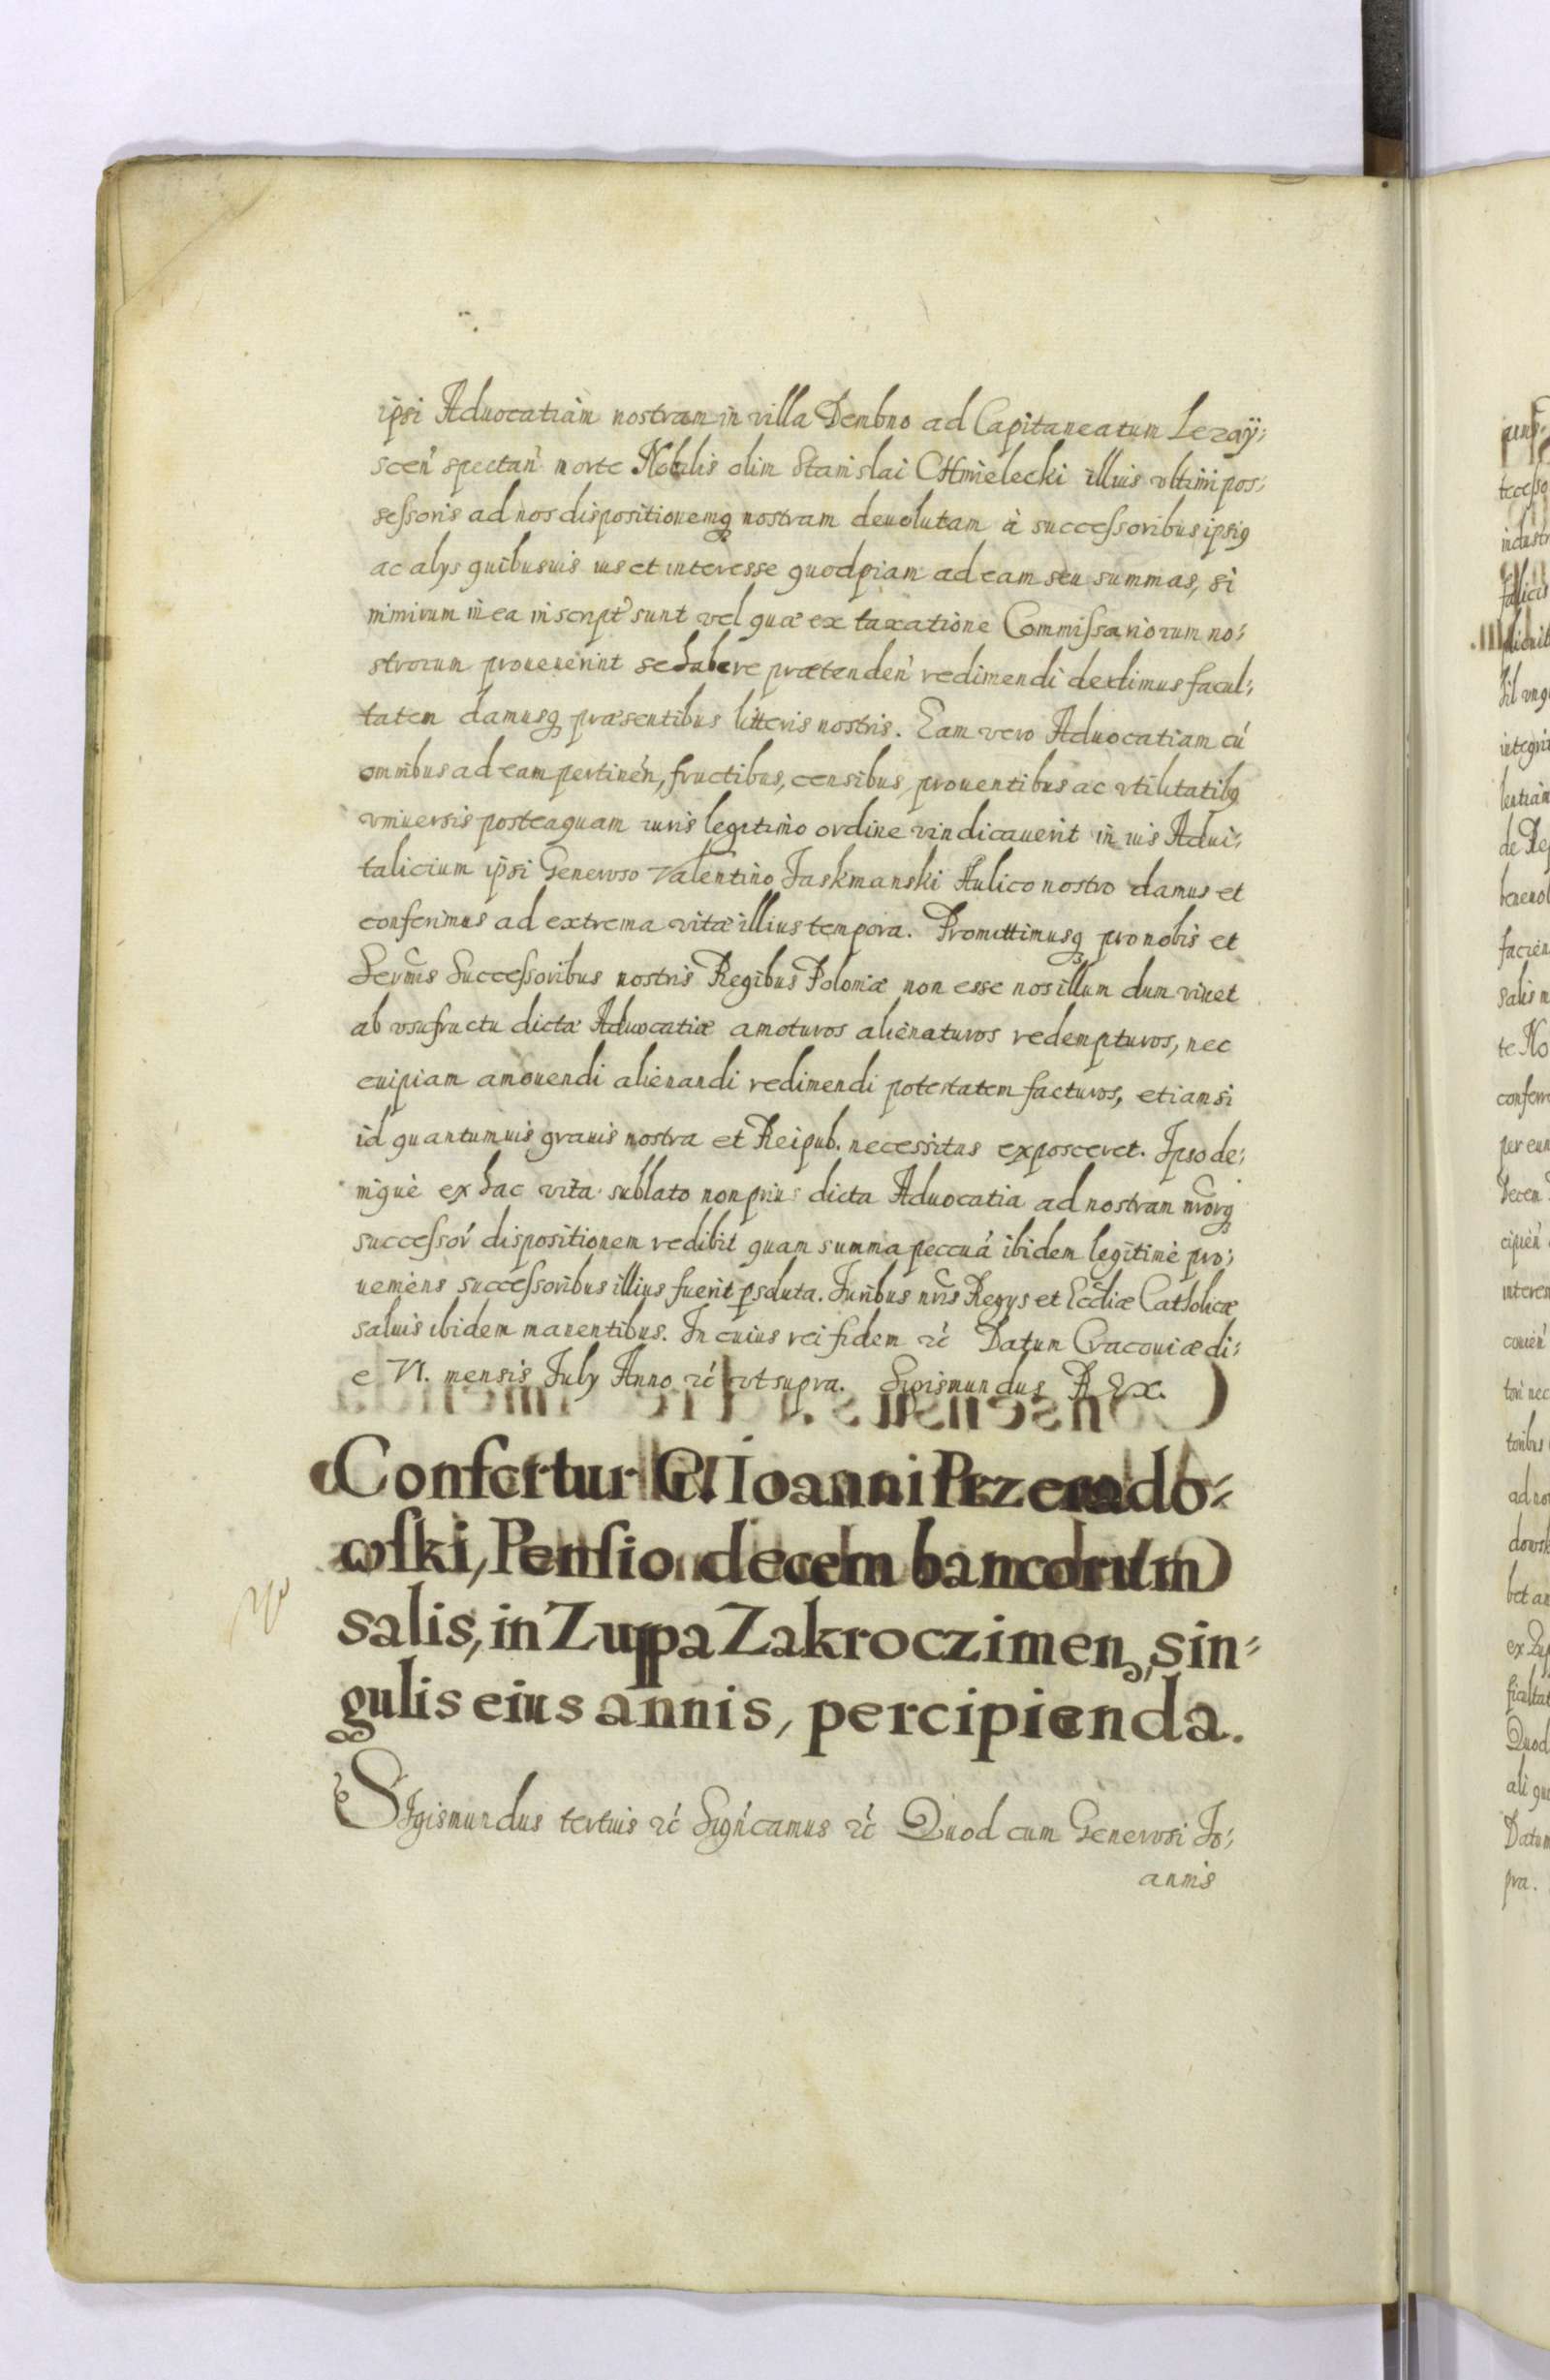 ipsi Aduocatiam nostram in villa Dembno ad Capitaneatum Lezaÿ:
scen̄ spectan̄ morte Nobilis olim Stanislai CHmielecki illius vltimi pos:
seſsoris ad nos dispositionemq̨ nostram deuolutam à succeſsoribus ipsiꝰ
ac alys quibusuis ius et interesse quodpiam ad eam seu summas, si
nimirum in ea inscript sunt vel quæ ex taxatione Commiſsariorum no:
strorum prouenerint se habere prætenden̄ redimendi dedimus facul:
tatem damusq̨ præsentibus litteris nostris. Eam vero Aduocatiam cú
omnibus ad eam pertinen̄, fructibus, censibus, prouentibus ac vtilitatibꝰ
vniuersis posteaquam iuris legitimo ordine vindicauerit in ius Adui:
talicium ipsi Generoso Valentino Jaskmanski Aulico nostro damus et
conferimus ad extrema vitæ illius tempora. Promittimusq̨ pro nobis et
Serm̄is Succeſsoribus nostris Regibus Poloniæ non esse nos illum dum viuet
ab vsufructu dictæ Aduocatiæ amoturos alienaturos redempturos, nec
cuipiam amouendi alienandi redimendi potestatem facturos, etiamsi
id quantumuis grauis nostra et Reipub. necessitas exposceret. Ipso de:
nique ex hac vita sublato non prius dicta Aduocatia ad nostram nr̄orq̨
succeſsor̄ dispositionem redibit quam summa peccuā ibidem legitime pro:
ueniens succeſsoribus illius fuerit p̱soluta. Iuribus nr̄is Regys et Eccl̄iæ Catholicæ
saluis ibidem manentibus. In cuius rei fidem ꝛc̄ Datum Cracouiæ di:
e VI. mensis July Anno ꝛc̄ vt supra. Sigismundus REx.
Confertur G. Ioanni Przerado:
wſki, Penſio decem bancorum
salis, in Zuppa Zakroczimen̨, sin:
gulis eius annis, percipienda.
SIgismundus tertius ꝛc̄ Sign̄camus ꝛc̄ Quod cum Generosi Jo:
annis